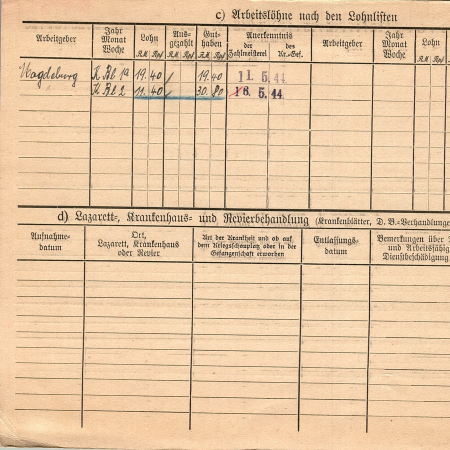 c) Arbeitslöhne nach den Lohnlisten
Arbeitgeber Jahr Monat Woche Lohn R.M. Rpf Ausgezahlt R.M. Rpf Guthaben R.M. Rpf Anerkenntnis der Zahlmeisterei des Kr.-Gef. Arbeitgeber Jahr Monat Woche Lohn R.M. Rpf
Magdeburg 19.40 19.40 11. 5. 44
11.40 30.80 16. 5. 44
d) Lazarett-, Krankenhaus- und Revierbehandlung (Krankenblätter, D. B.-Verhandlunge
Aufnahme-
datum
Ort,
Lazarett, Krankenhaus
oder Revier
Art der Krankheit und ob auf
dem Kriegsschauplatz oder in der
Gefangenschaft erworben
Entlassungs-
datum
Bemerkungen über
und Arbeitsfähig
Dienstbeschädigung